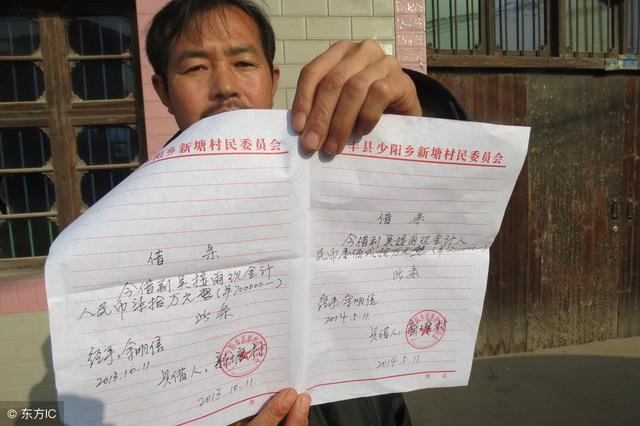 阳乡新塘村民委员会
借 条
今借到吴接雨现金计
人民币柒拾万元整(¥700000—)
此条
经手:余明信
2013.10.11
具借人:新塘村
2013.10.11
丰县少阳乡新塘村民委员会
借 条
今借到吴接雨现金计人
此条
经手:余明信
2014.5.11
具借人:新塘村
2014.5.11
© 东方IC